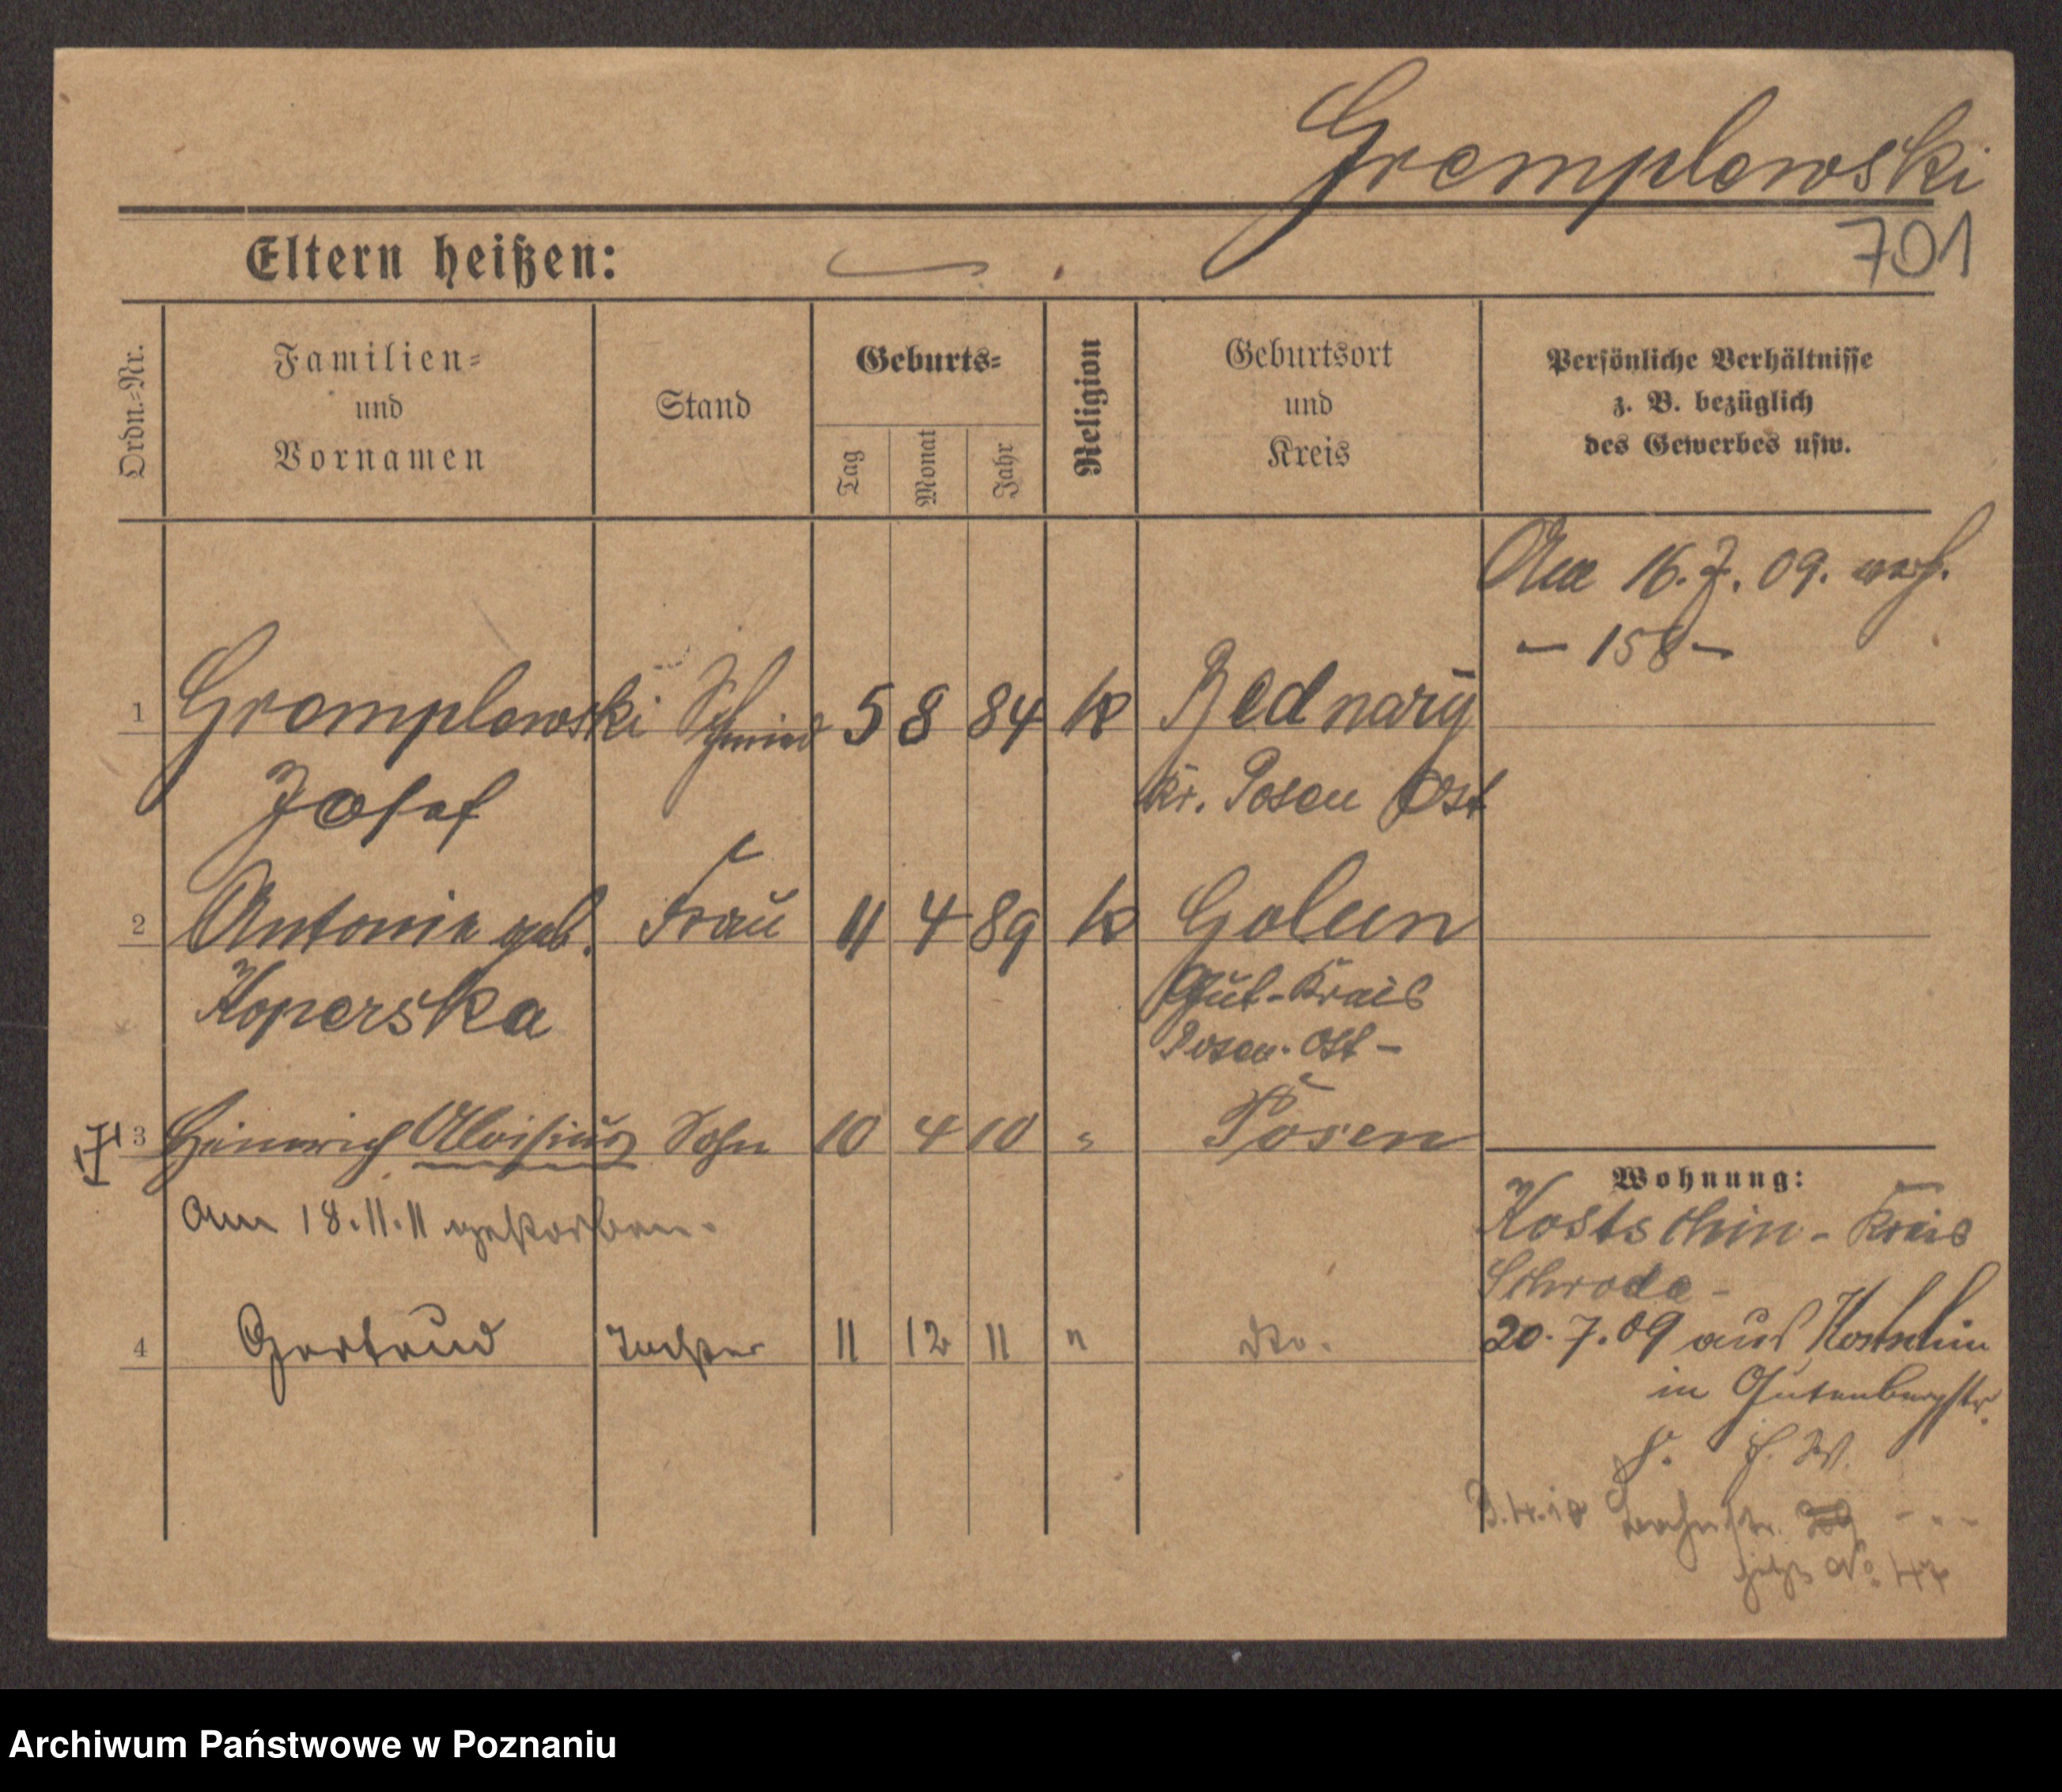 Gremplewski
701
Eltern heißen:
Ordn.-Nr.
Familien- und Vornamen
Stand
Geburts-
Tag
Monat
Jahr
Religion
Geburtsort und Kreis
Persönliche Verhältnisse
z. B. bezüglich
des Gewerbes usw.
Am 16.7.09. verh.
- 158 -
1 Gremplewski Schmied 5 8 84 k Bednary
Josef Kr. Posen Ost
2 Antonie geb. Frau 11 4 89 k Golun
Koperska Gut-Kreis
Posen-Ost-
3 Heinrich Aloisius Sohn 10 4 10 " Posen
am 18.11.11 gestorben.
4 Gertrud Tochter 11 12 11 " dto.
Wohnung:
Kostschin - Kreis
Schroda -
20.7.09 aus Kostschin
in Gutenbergstr.
3.4.10 29
jetzt No. 47
Archiwum Państwowe w Poznaniu